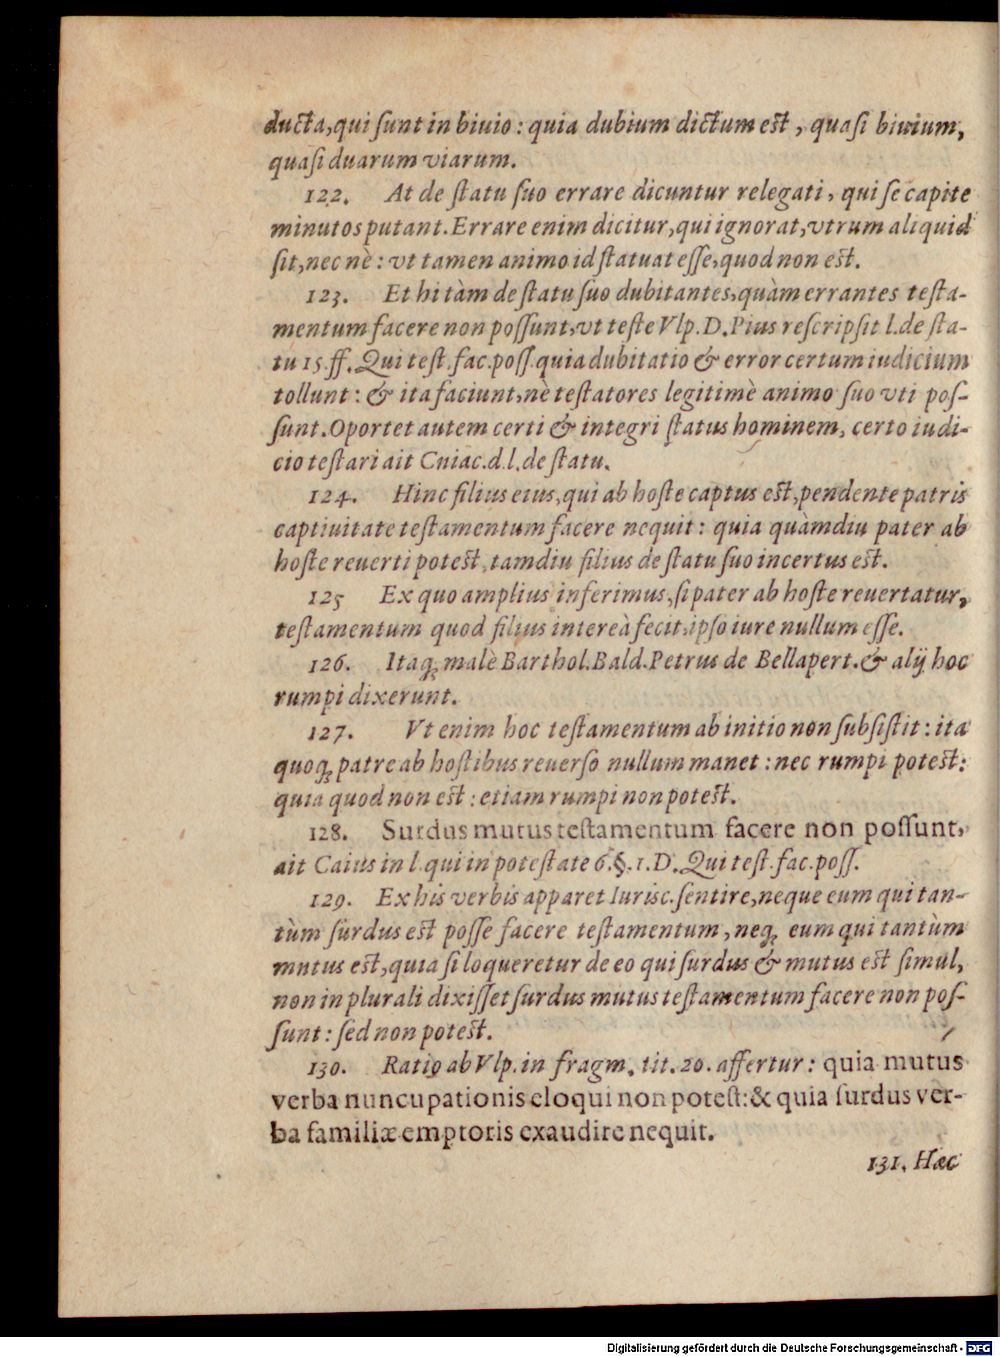 ducta, qui ſunt in biuio: quia dubium dictum est, quaſi biuium,
quaſi duarum viarum.
122. At de ſtatu ſuo errare dicuntur relegati, qui ſe capite
minutos putant. Errare enim dicitur, qui ignorat, vtrum aliquid
sit, nec nè: vt tamen animo id ſtatuat eſſe, quod non est.
123. Et hi tàm de ſtatu ſuo dubitantes, quàm errantes teſta-
mentum facere non poſſunt, vt teſte Vlp. D. Pius reſcripſit l. de ſta-
tu 15. ff. Qui teſt. fac. poſſ. quia dubitatio & error certum iudicium
tollunt: & ita faciunt, nè teſtatores legitimè animo ſuo vti poſ-
ſunt. Oportet autem certi & integri ſtatus hominem, certo iudi-
cio teſtari ait Cuiac. d. l. de ſtatu.
124. Hinc filius eius, qui ab hoſte captus est, pendente patris
captiuitate teſtamentum facere nequit: quia quàmdiu pater ab
hoſte reuerti potest, tamdiu filius de ſtatu ſuo incertus est.
125 Ex quo amplius inferimus, ſi pater ab hoſte reuertatur,
teſtamentum quod filius intereà fecit, ipſo iure nullum eſſe.
126. Itaq; malè Barthol. Bald. Petrus de Bellapert. & alij hoc
rumpi dixerunt.
127. Vt enim hoc teſtamentum ab initio non ſubſiſtit: ita
quoq; patre ab hoſtibus reuerſo nullum manet: nec rumpi potest:
quia quod non est: etiam rumpi non potest.
128. Surdus mutus teſtamentum facere non poſſunt,
ait Caius in l. qui in poteſtate 6. §. 1. D. Qui teſt. fac. poſſ.
129. Ex his verbis apparet Iurisc. ſentire, neque eum qui tan-
tùm ſurdus est poſſe facere teſtamentum, neq; eum qui tantùm
mutus est, quia ſi loqueretur de eo qui ſurdus & mutus est ſimul,
non in plurali dixiſſet ſurdus mutus teſtamentum facere non poſ-
ſunt: ſed non potest.
130. Ratio ab Vlp. in fragm. tit. 20. affertur: quia mutus
verba nuncupationis eloqui non poteſt: & quia ſurdus ver-
ba familiæ emptoris exaudire nequit.
131. Hæc
Digitalisierung gefördert durch die Deutsche Forschungsgemeinschaft - DFG